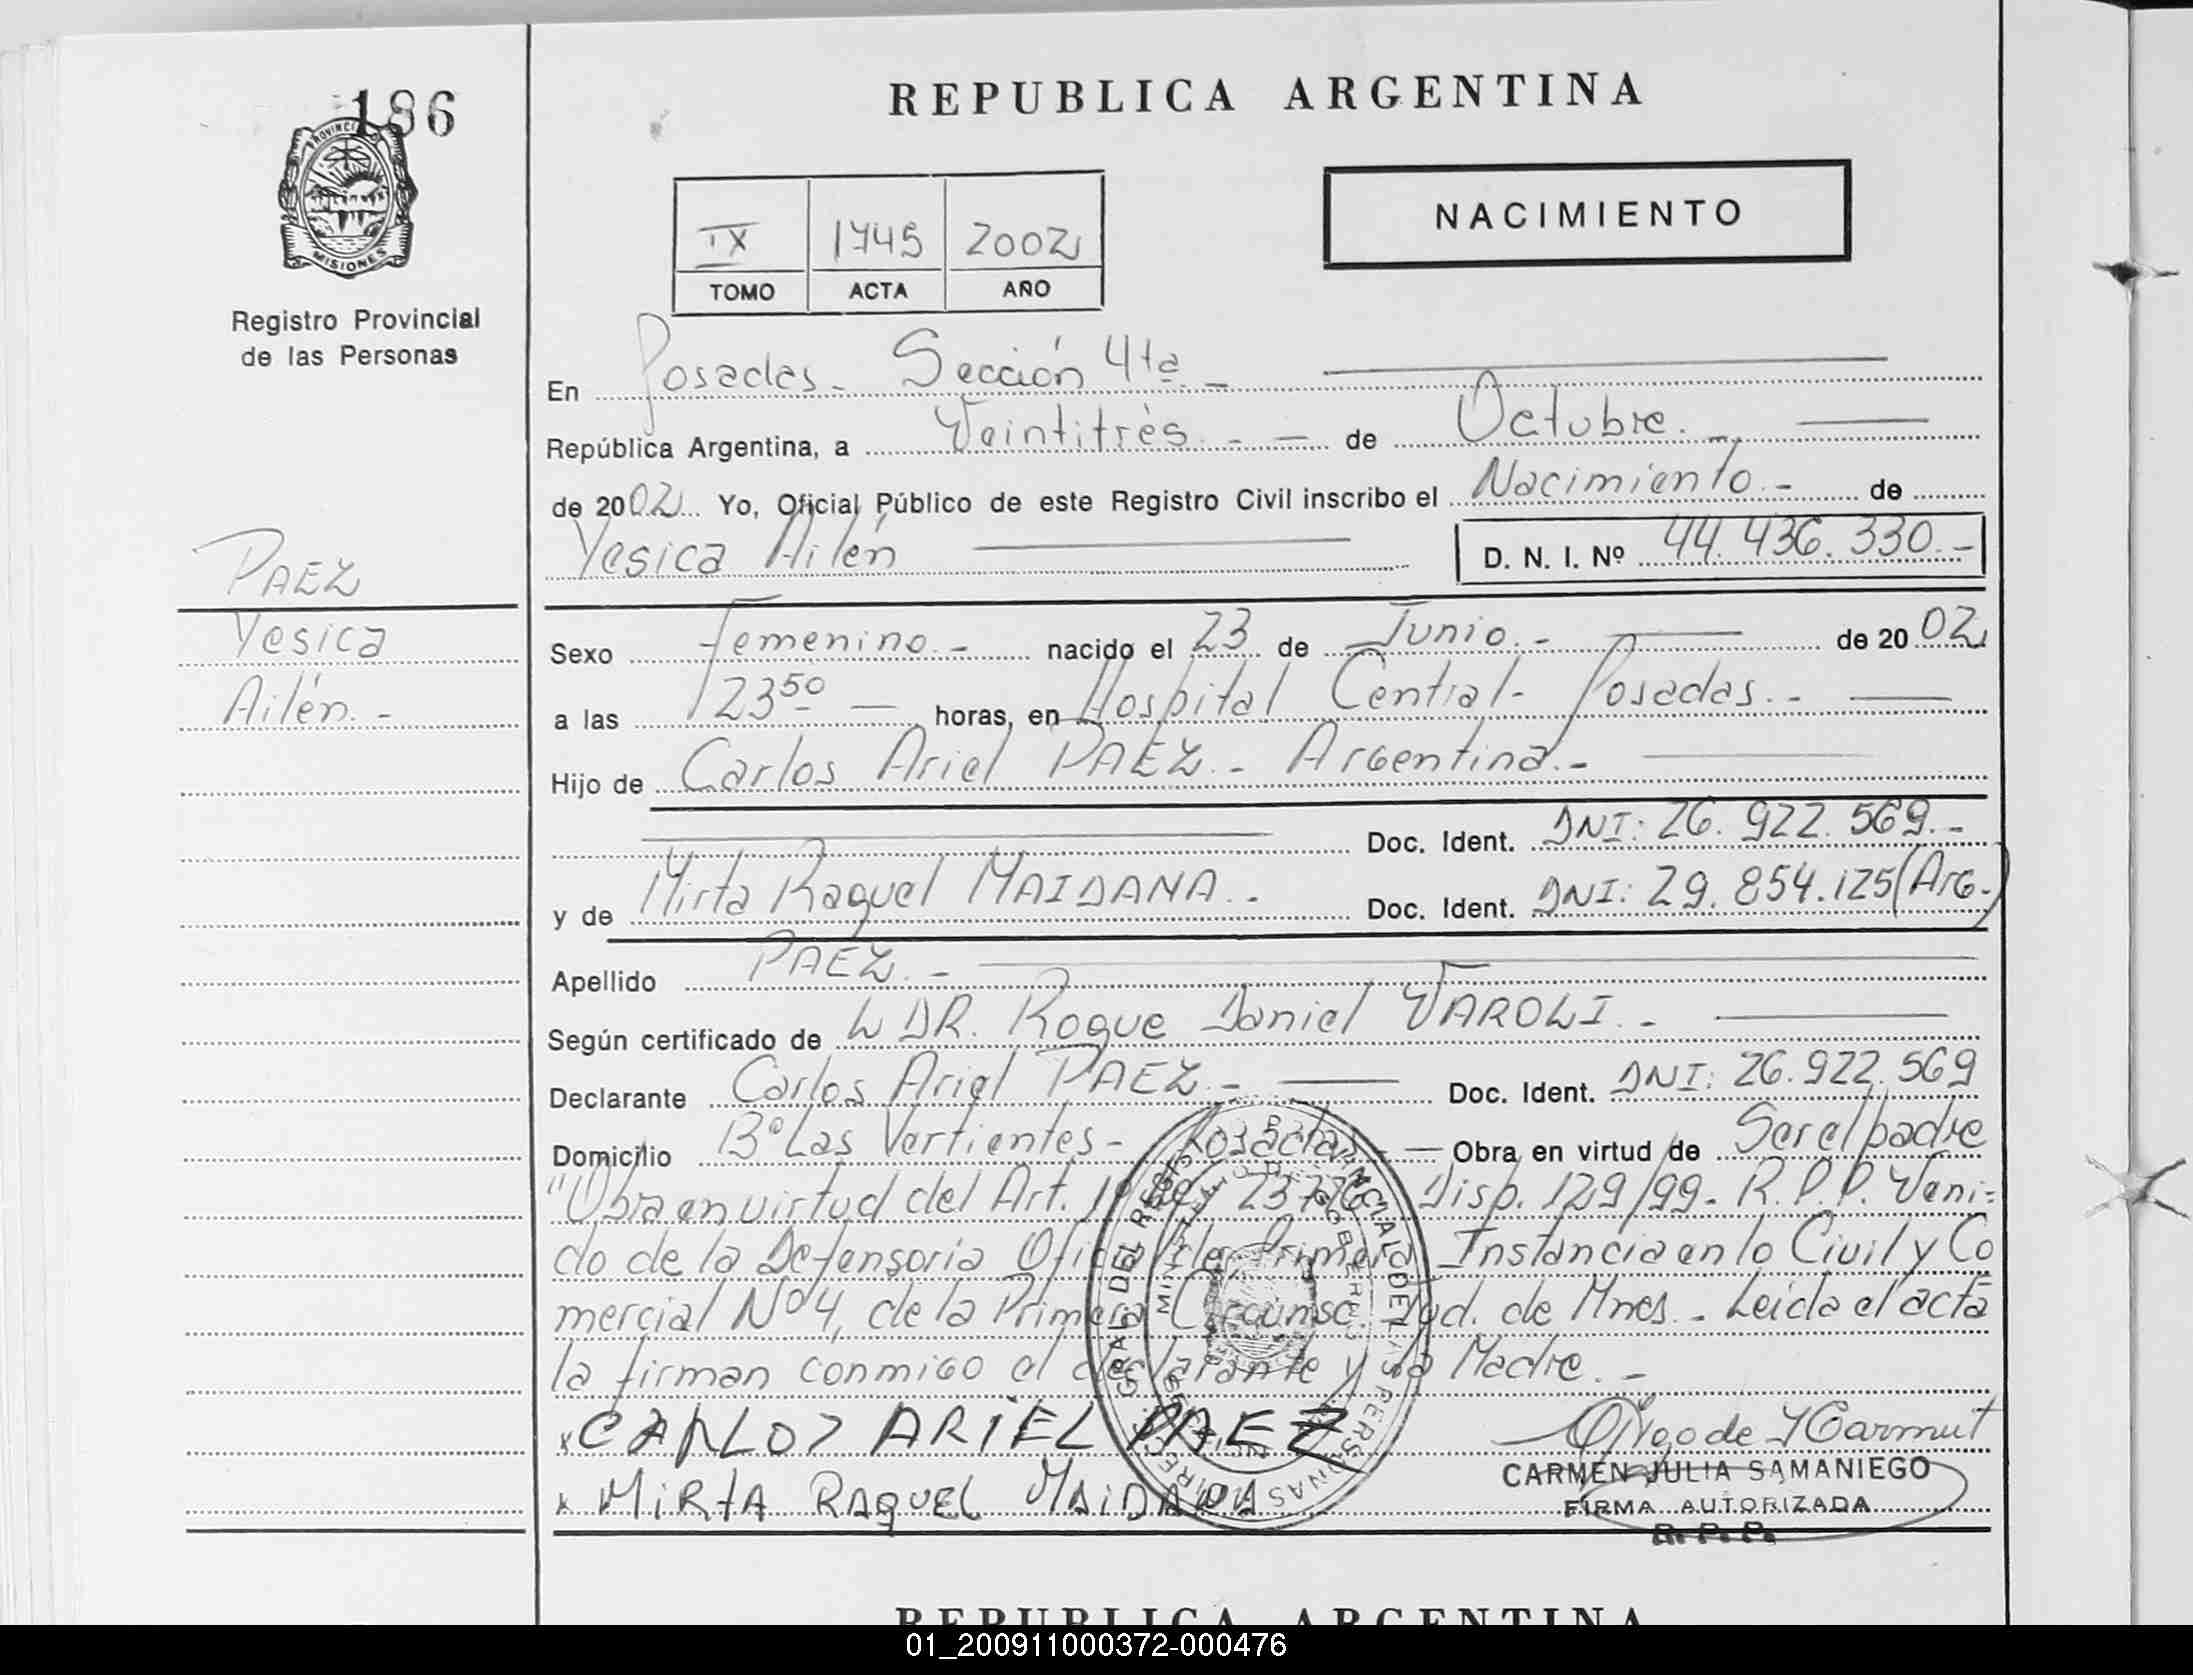 186
PROVINCIA DE
MISIONES
Registro Provincial
de las Personas
PAEZ
Yesica
Ailén.-
REPUBLICA ARGENTINA
NACIMIENTO
IX 1745 2002
TOMO ACTA AÑO
En Posadas - Sección 4ta -
República Argentina, a Veintitrés. - - de Octubre. -
de 2002 Yo, Oficial Público de este Registro Civil inscribo el Nacimiento - de
Yesica Ailén D. N. I. Nº 44.436.330.-
Sexo Femenino. - nacido el 23 de Junio. - de 2002
a las 23 50 - horas, en Hospital Central - Posadas. -
Hijo de Carlos Ariel PAEZ. - Argentina. -
Doc. Ident. DNI: 26.922.569.-
y de Mirta Raquel MAIDANA. - Doc. Ident. DNI: 29.854.125 (Arg.)
Apellido PAEZ. -
Según certificado de DR. Roque Daniel VAROLI. -
Declarante Carlos Ariel PAEZ. - Doc. Ident. DNI: 26.922.569
Domicilio Bº Las Vertientes - Posadas - Obra en virtud de Ser el padre
"Obra en virtud del Art. 23776 Disp. 129/99 - R.P.P. Veni=
do de la Defensoría Oficial de Primera Instancia en lo Civil y Co
mercial Nº 4, de la Primera Circunsc. Jud. de Mnes. - Leída el acta
la firman conmigo el declarante y la Madre. -
x CARLOS ARIEL PAEZ
x MIRTA RAQUEL MAIDANA
CARMEN JULIA SAMANIEGO
FIRMA AUTORIZADA
R. P. P.
REPUBLICA ARGENTINA
01_200911000372-000476